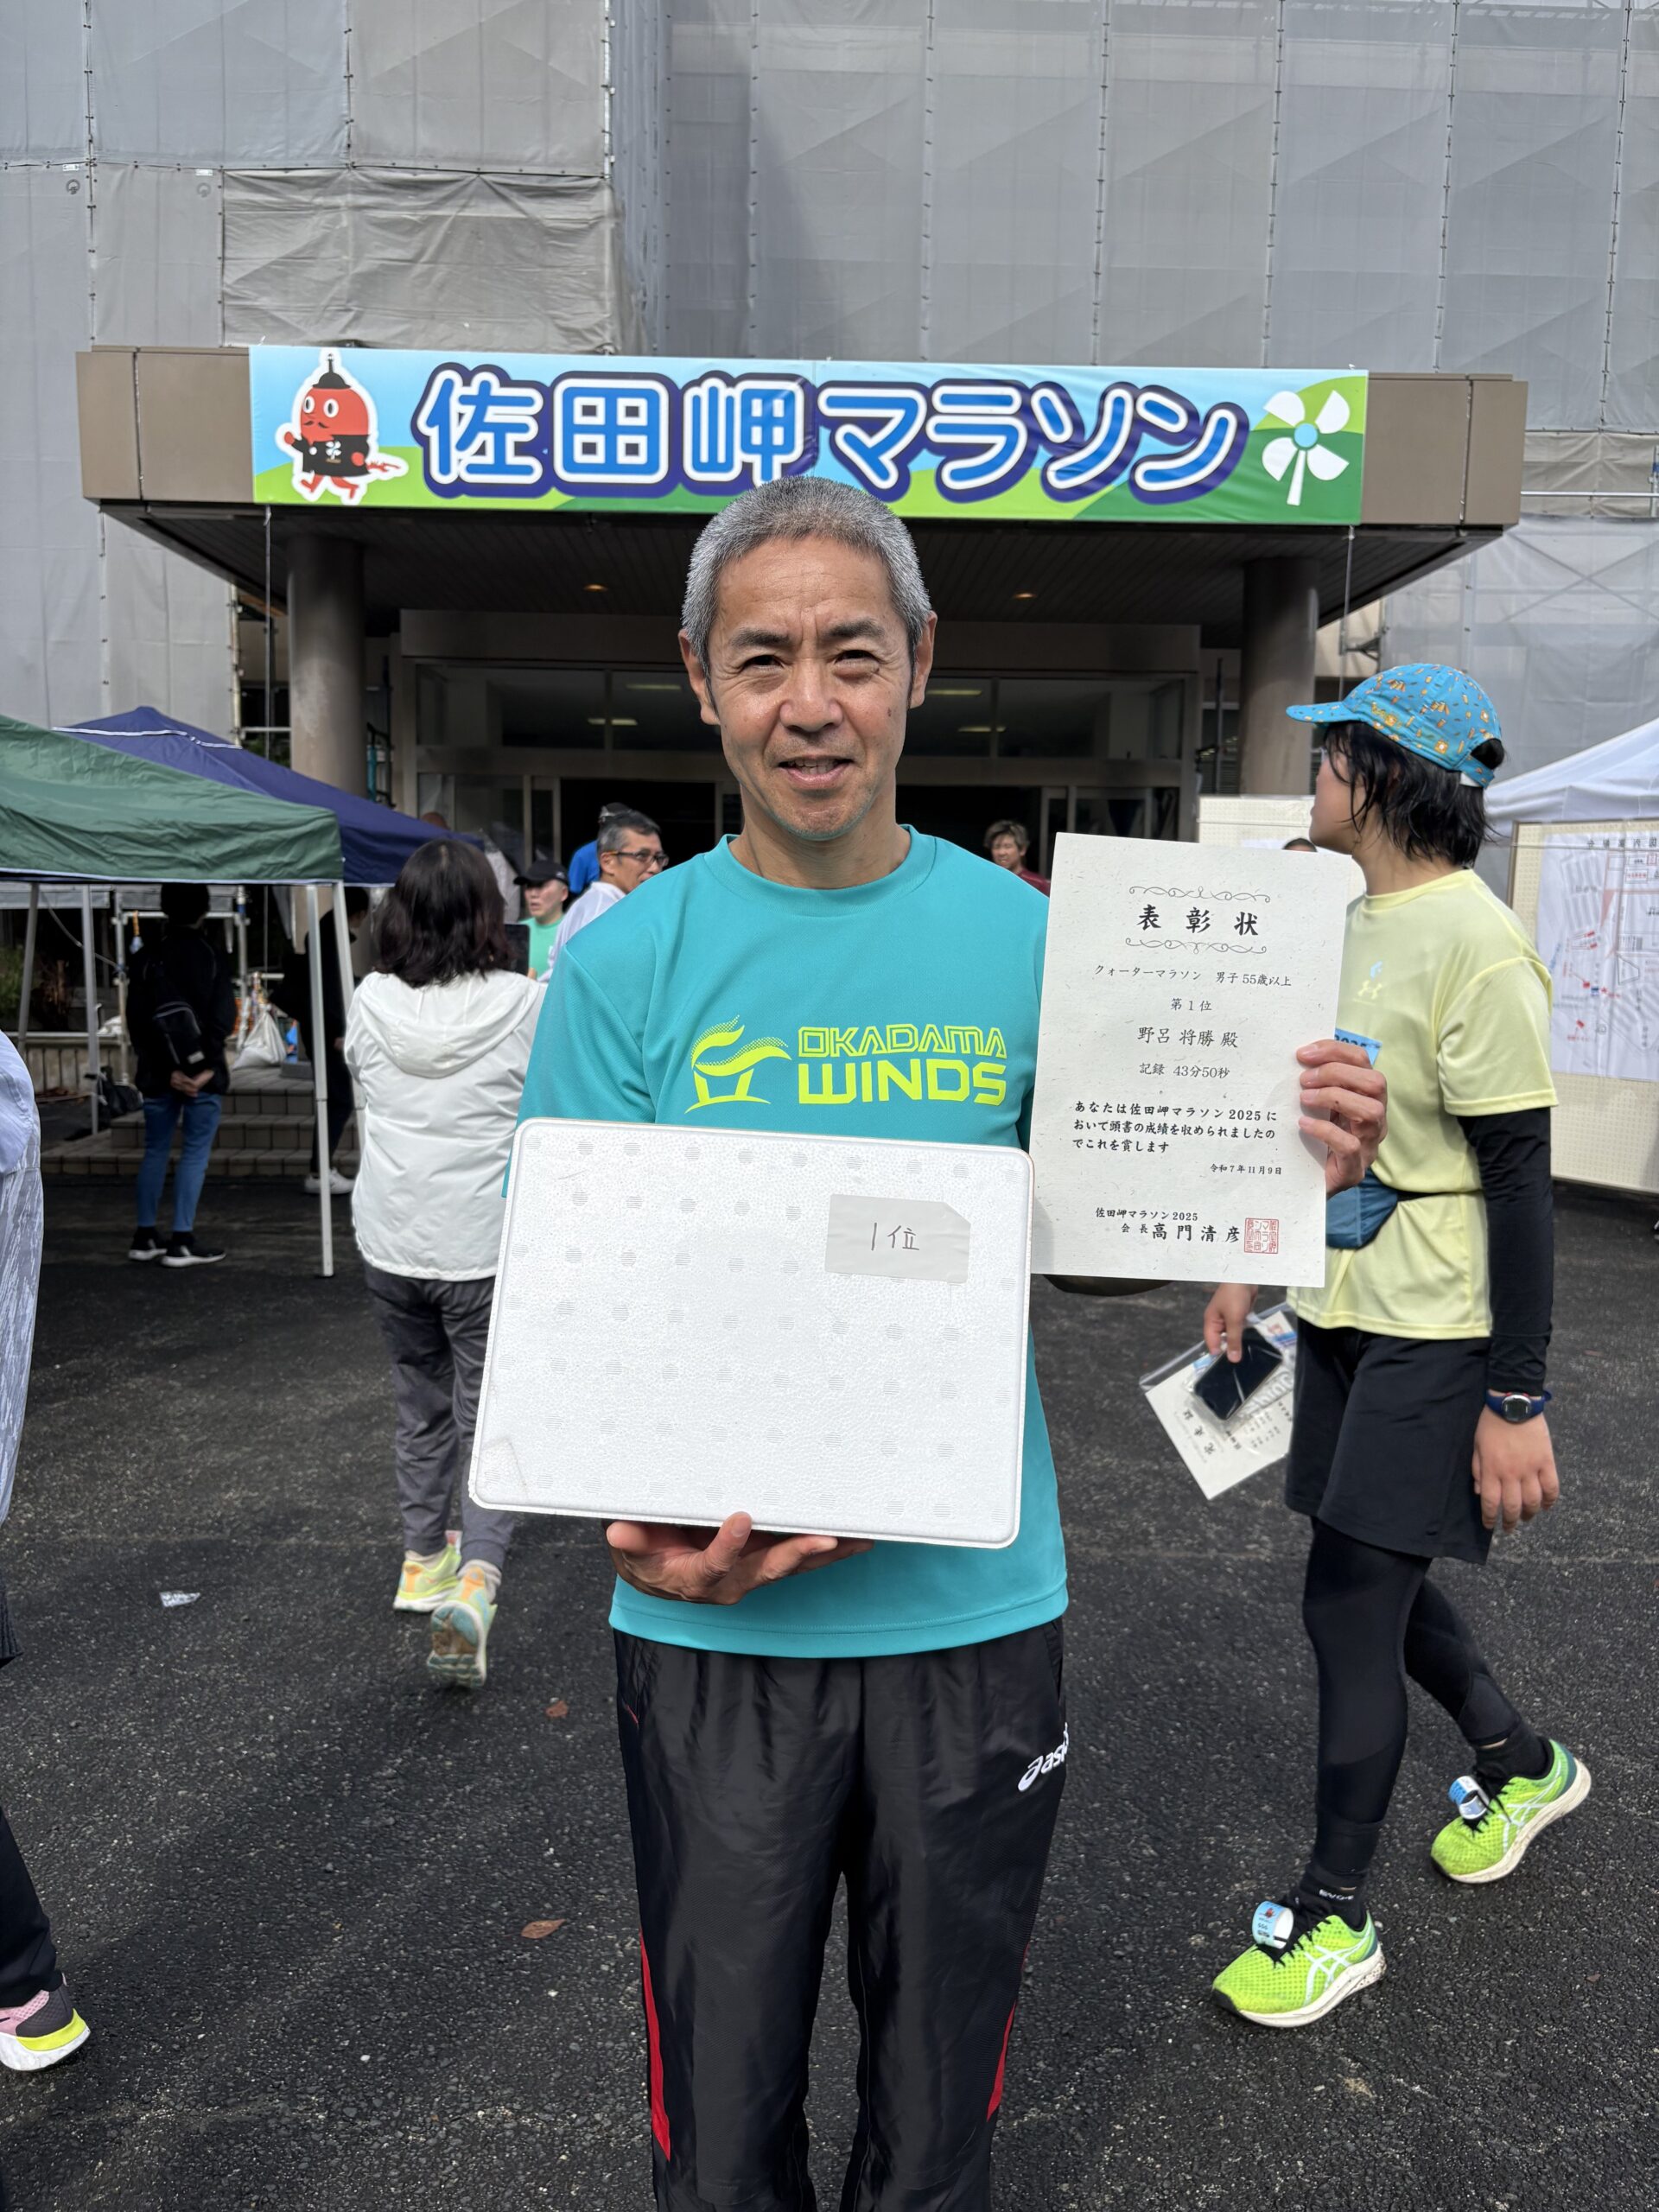 佐田岬マラソン
OKADAMA
WINDS
表彰状
クォーターマラソン 男子55歳以上
第1位
野呂 将勝 殿
記録 43分50秒
あなたは佐田岬マラソン2025に
おいて頭書の成績を収められましたの
でこれを賞します
令和7年11月9日
佐田岬マラソン2025
会長 高門清彦
1位
asics